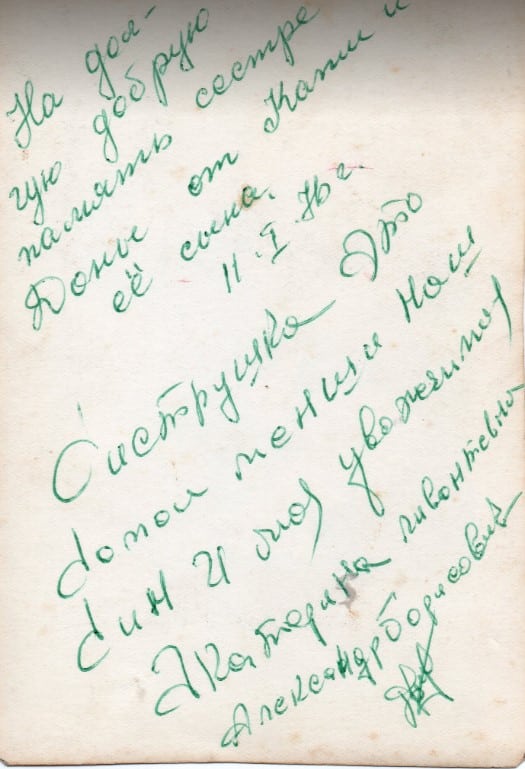 На дол-
гую добрую
память сестре
Доньке от Кати и
её сына.
11.I.76г.
Систрушка Это
дапом менши наш
Син И моя уважаимая
Экатирина ливонтевна
Александр Борисович